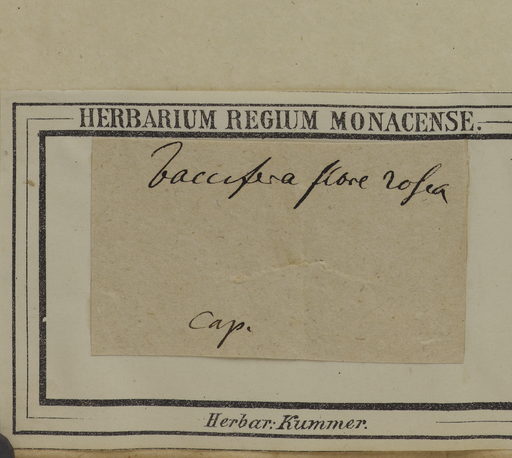 HERBARIUM REGIUM MONACENSE.
baccifera flore rosea
Cap.
Herbar: Kummer.